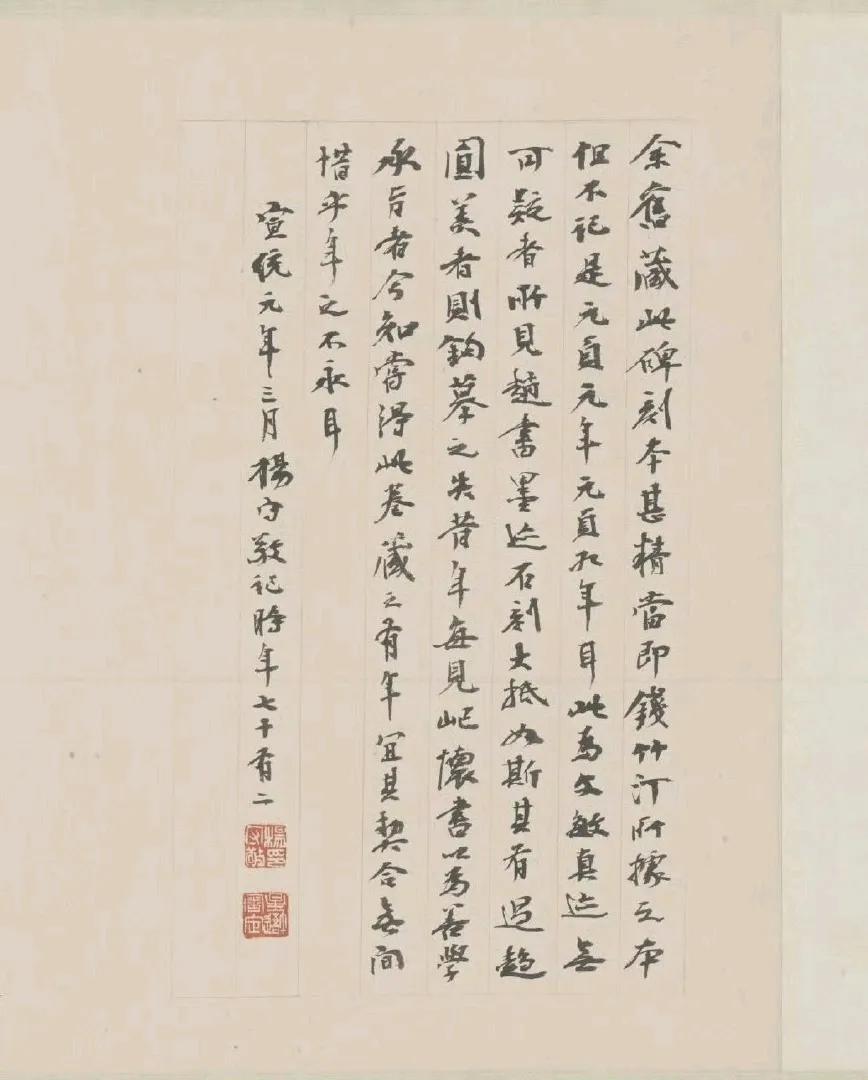 余舊藏此碑刻本甚精當即錢竹汀所據之本
但不記是元貞元年元貞九年耳此為文敏真迹無
可疑者所見趙書墨迹石刻大抵如斯其有過趨
圓美者則鈎摹之失昔年每見屺懷書以為善學
承旨者今知嘗得此卷藏之有年宜其契合無間
惜乎年之不永耳
宣統元年三月楊守敬記時年七十有二
楊印守敬